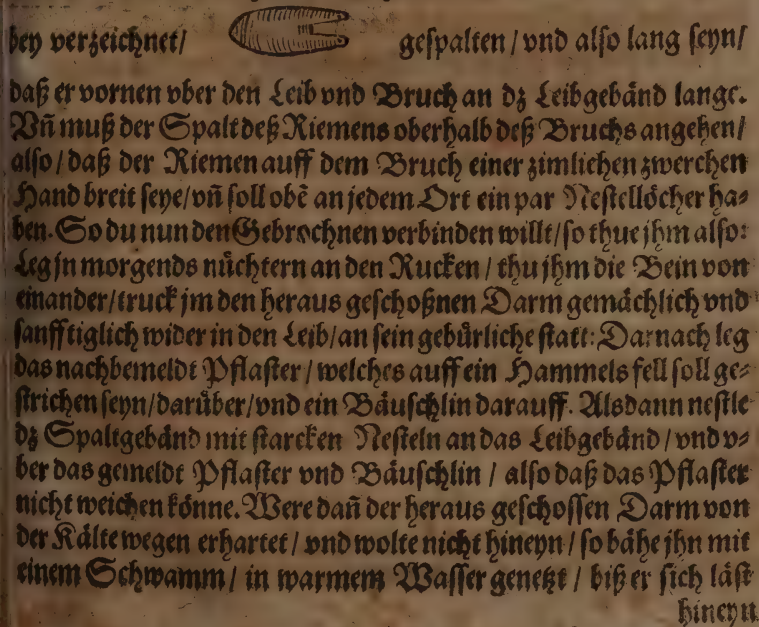 bey verzeichnet/ gespalten / vnd also lang seyn/
daß er vornen vber den Leib vnd Bruch an dz Leibgebänd lange.
Vñ muß der Spalt deß Riemens oberhalb deß Bruchs angehen/
also / daß der Riemen auff dem Bruch einer zimlichen zwerchen
Hand breit seye/vñ soll obẽ an jedem Ort ein par Nestellöcher ha⸗
ben. So du nun den Gebrochnen verbinden willt/so thue jhm also:
Leg jn morgends nüchtern an den Rucken / thu jhm die Bein von
einander/truck jm den heraus geschoßnen Darm gemächlich vnd
sanfftiglich wider in den Leib/an sein gebürliche statt: Darnach leg
das nachbemeldt Pflaster / welches auff ein Hammels fell soll ge⸗
strichen seyn/darüber/vnd ein Bäuschlin darauff. Alsdann nestle
dz Spaltgebänd mit starcken Nesteln an das Leibgebänd / vnd v⸗
ber das gemeldt Pflaster vnd Bäuschlin / also daß das Pflaster
nicht weichen könne. Were dañ der heraus geschossen Darm von
der Kälte wegen erhartet / vnd wolte nicht hineyn / so bähe jhn mit
einem Schwamm / in warmem Wasser genetzt / biß er sich läst
hineyn